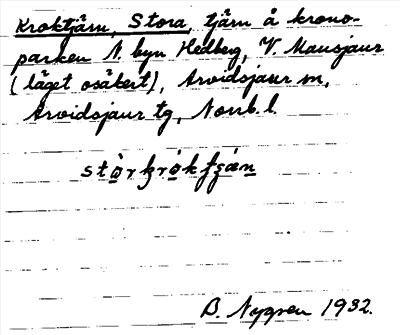 Kroktjärn, Stora, tjärn å krono-
parken N. byn Hedberg, V. Mausjaur
(läget osäkert), Arvidsjaur sn,
Arvidsjaur tg, Norrb. l.
B. Nygren 1932.